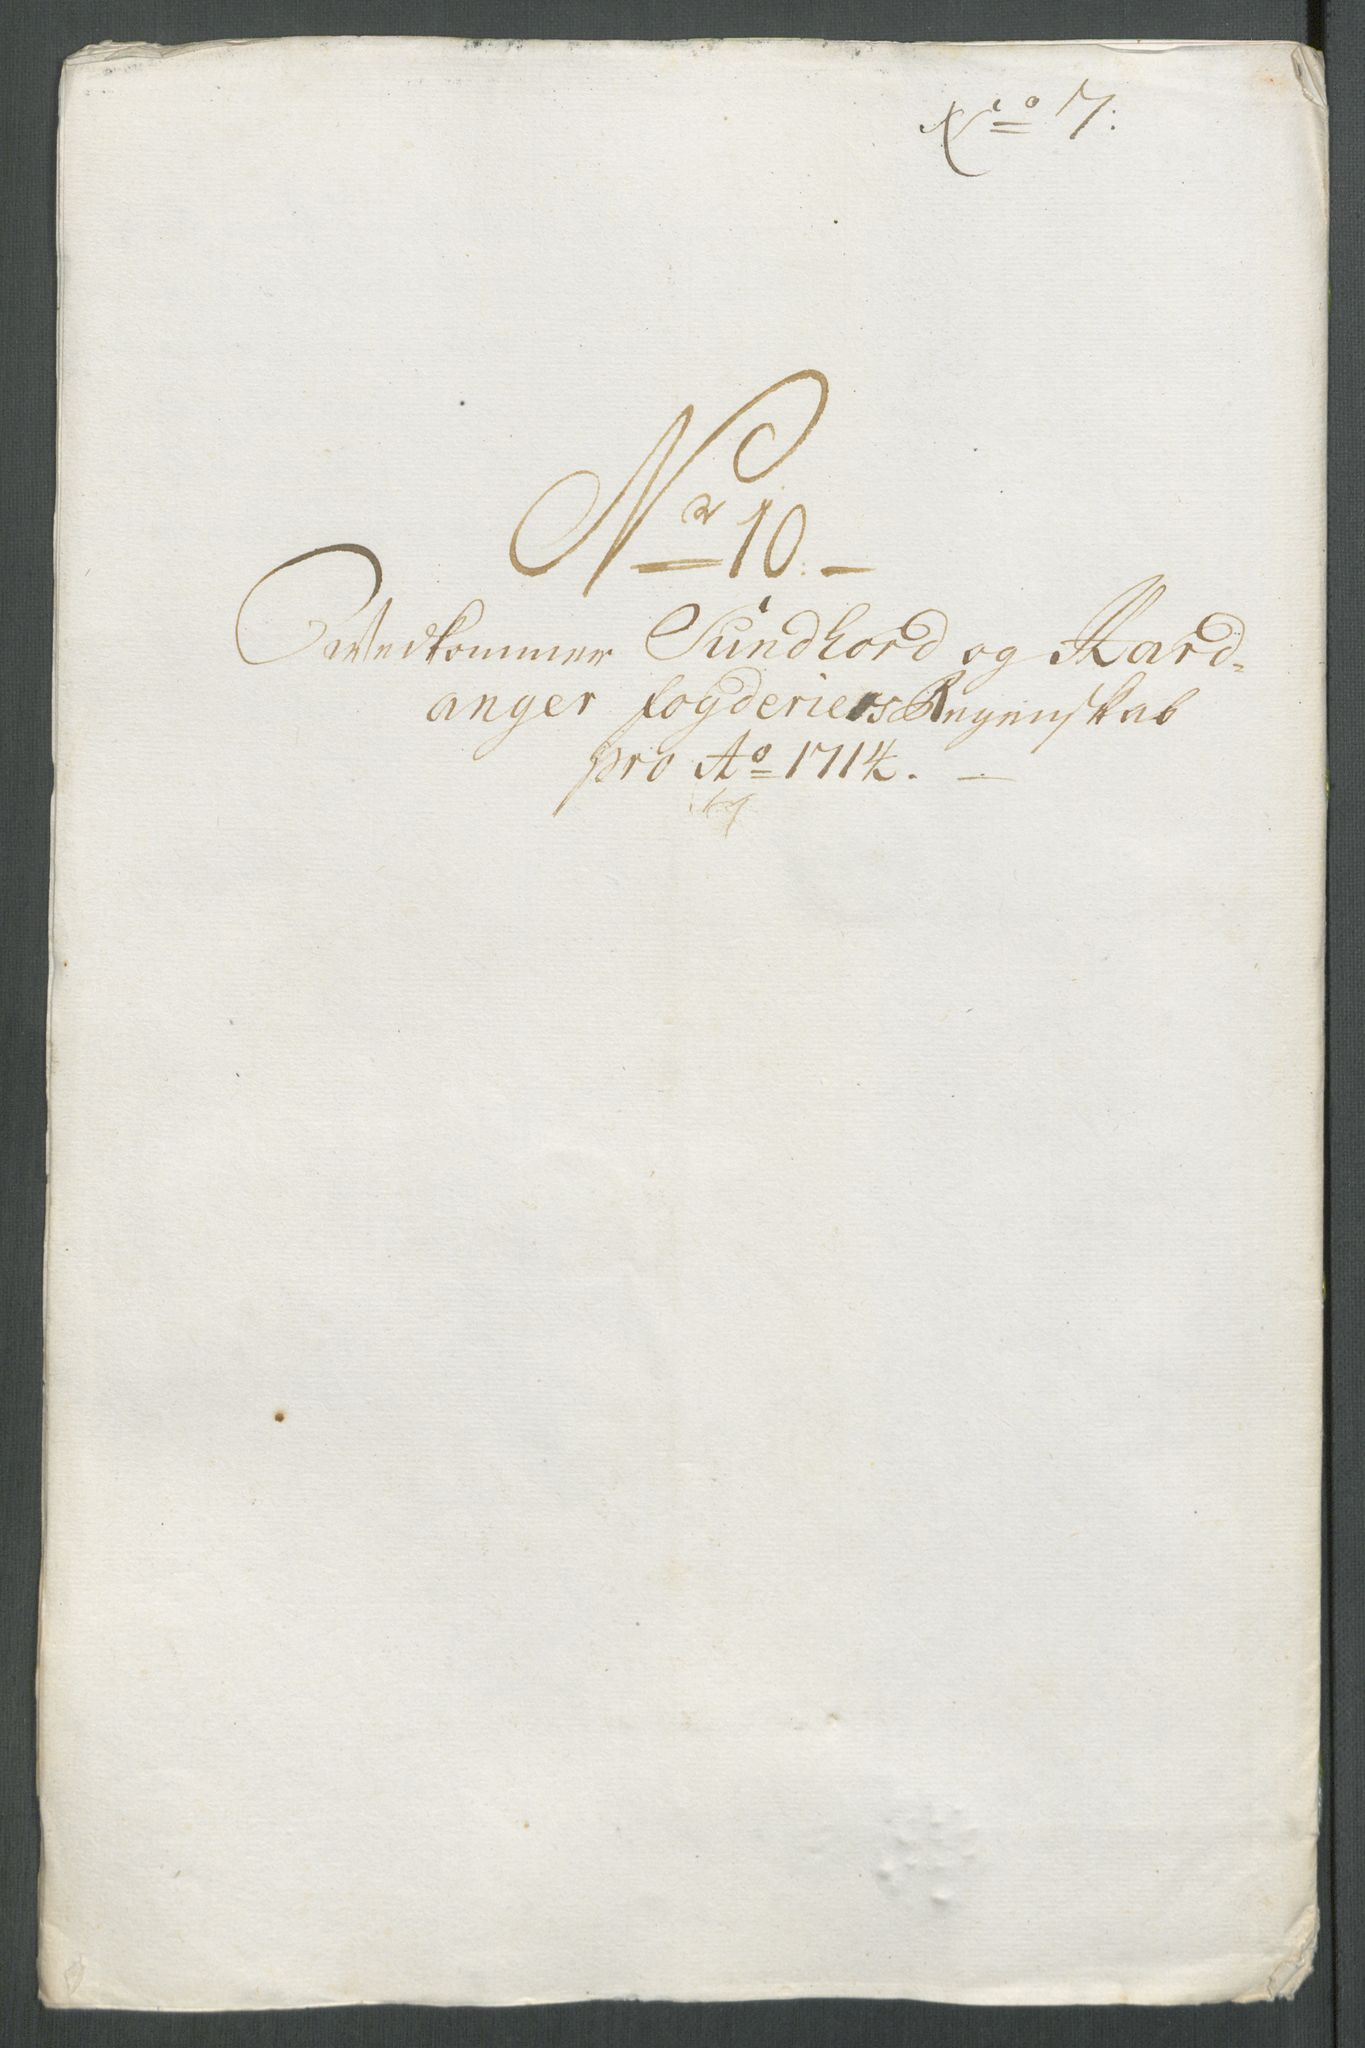 No 7.
Nr 10.
Vedkommer Sundhord og Hard-
anger fogderiers Regenskab
pro Ao 1714.